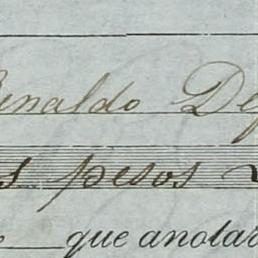 inaldo De
s pesos
que anotar